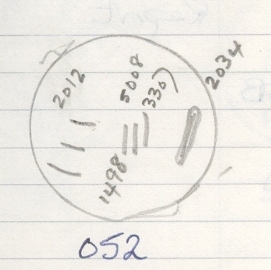 2012
5008
330
2034
1498
052